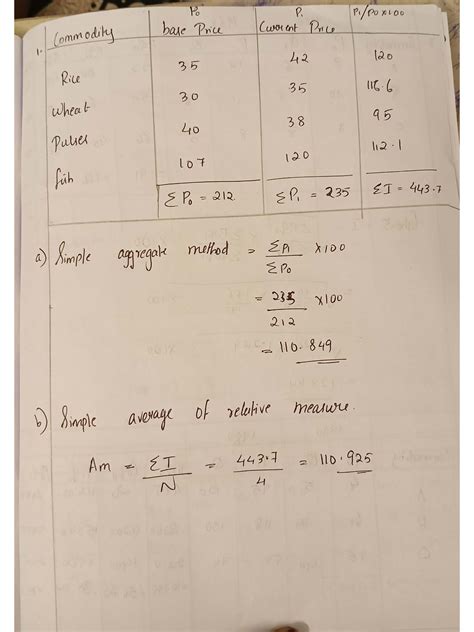 P₀ P₁ P₁/P₀x100
1. Commodity base Price Current Price
Rice 35 42 120
Wheat 30 35 116.6
Pulses 40 38 95
fish 107 120 112.1
ΣP₀ = 212 ΣP₁ = 235 ΣI = 443.7
a) Simple aggregate method = ΣP₁ x100
ΣP₀
= 235 x100
212
= 110.849
b) Simple average of relative measure.
Am = ΣI = 443.7 = 110.925
N 4